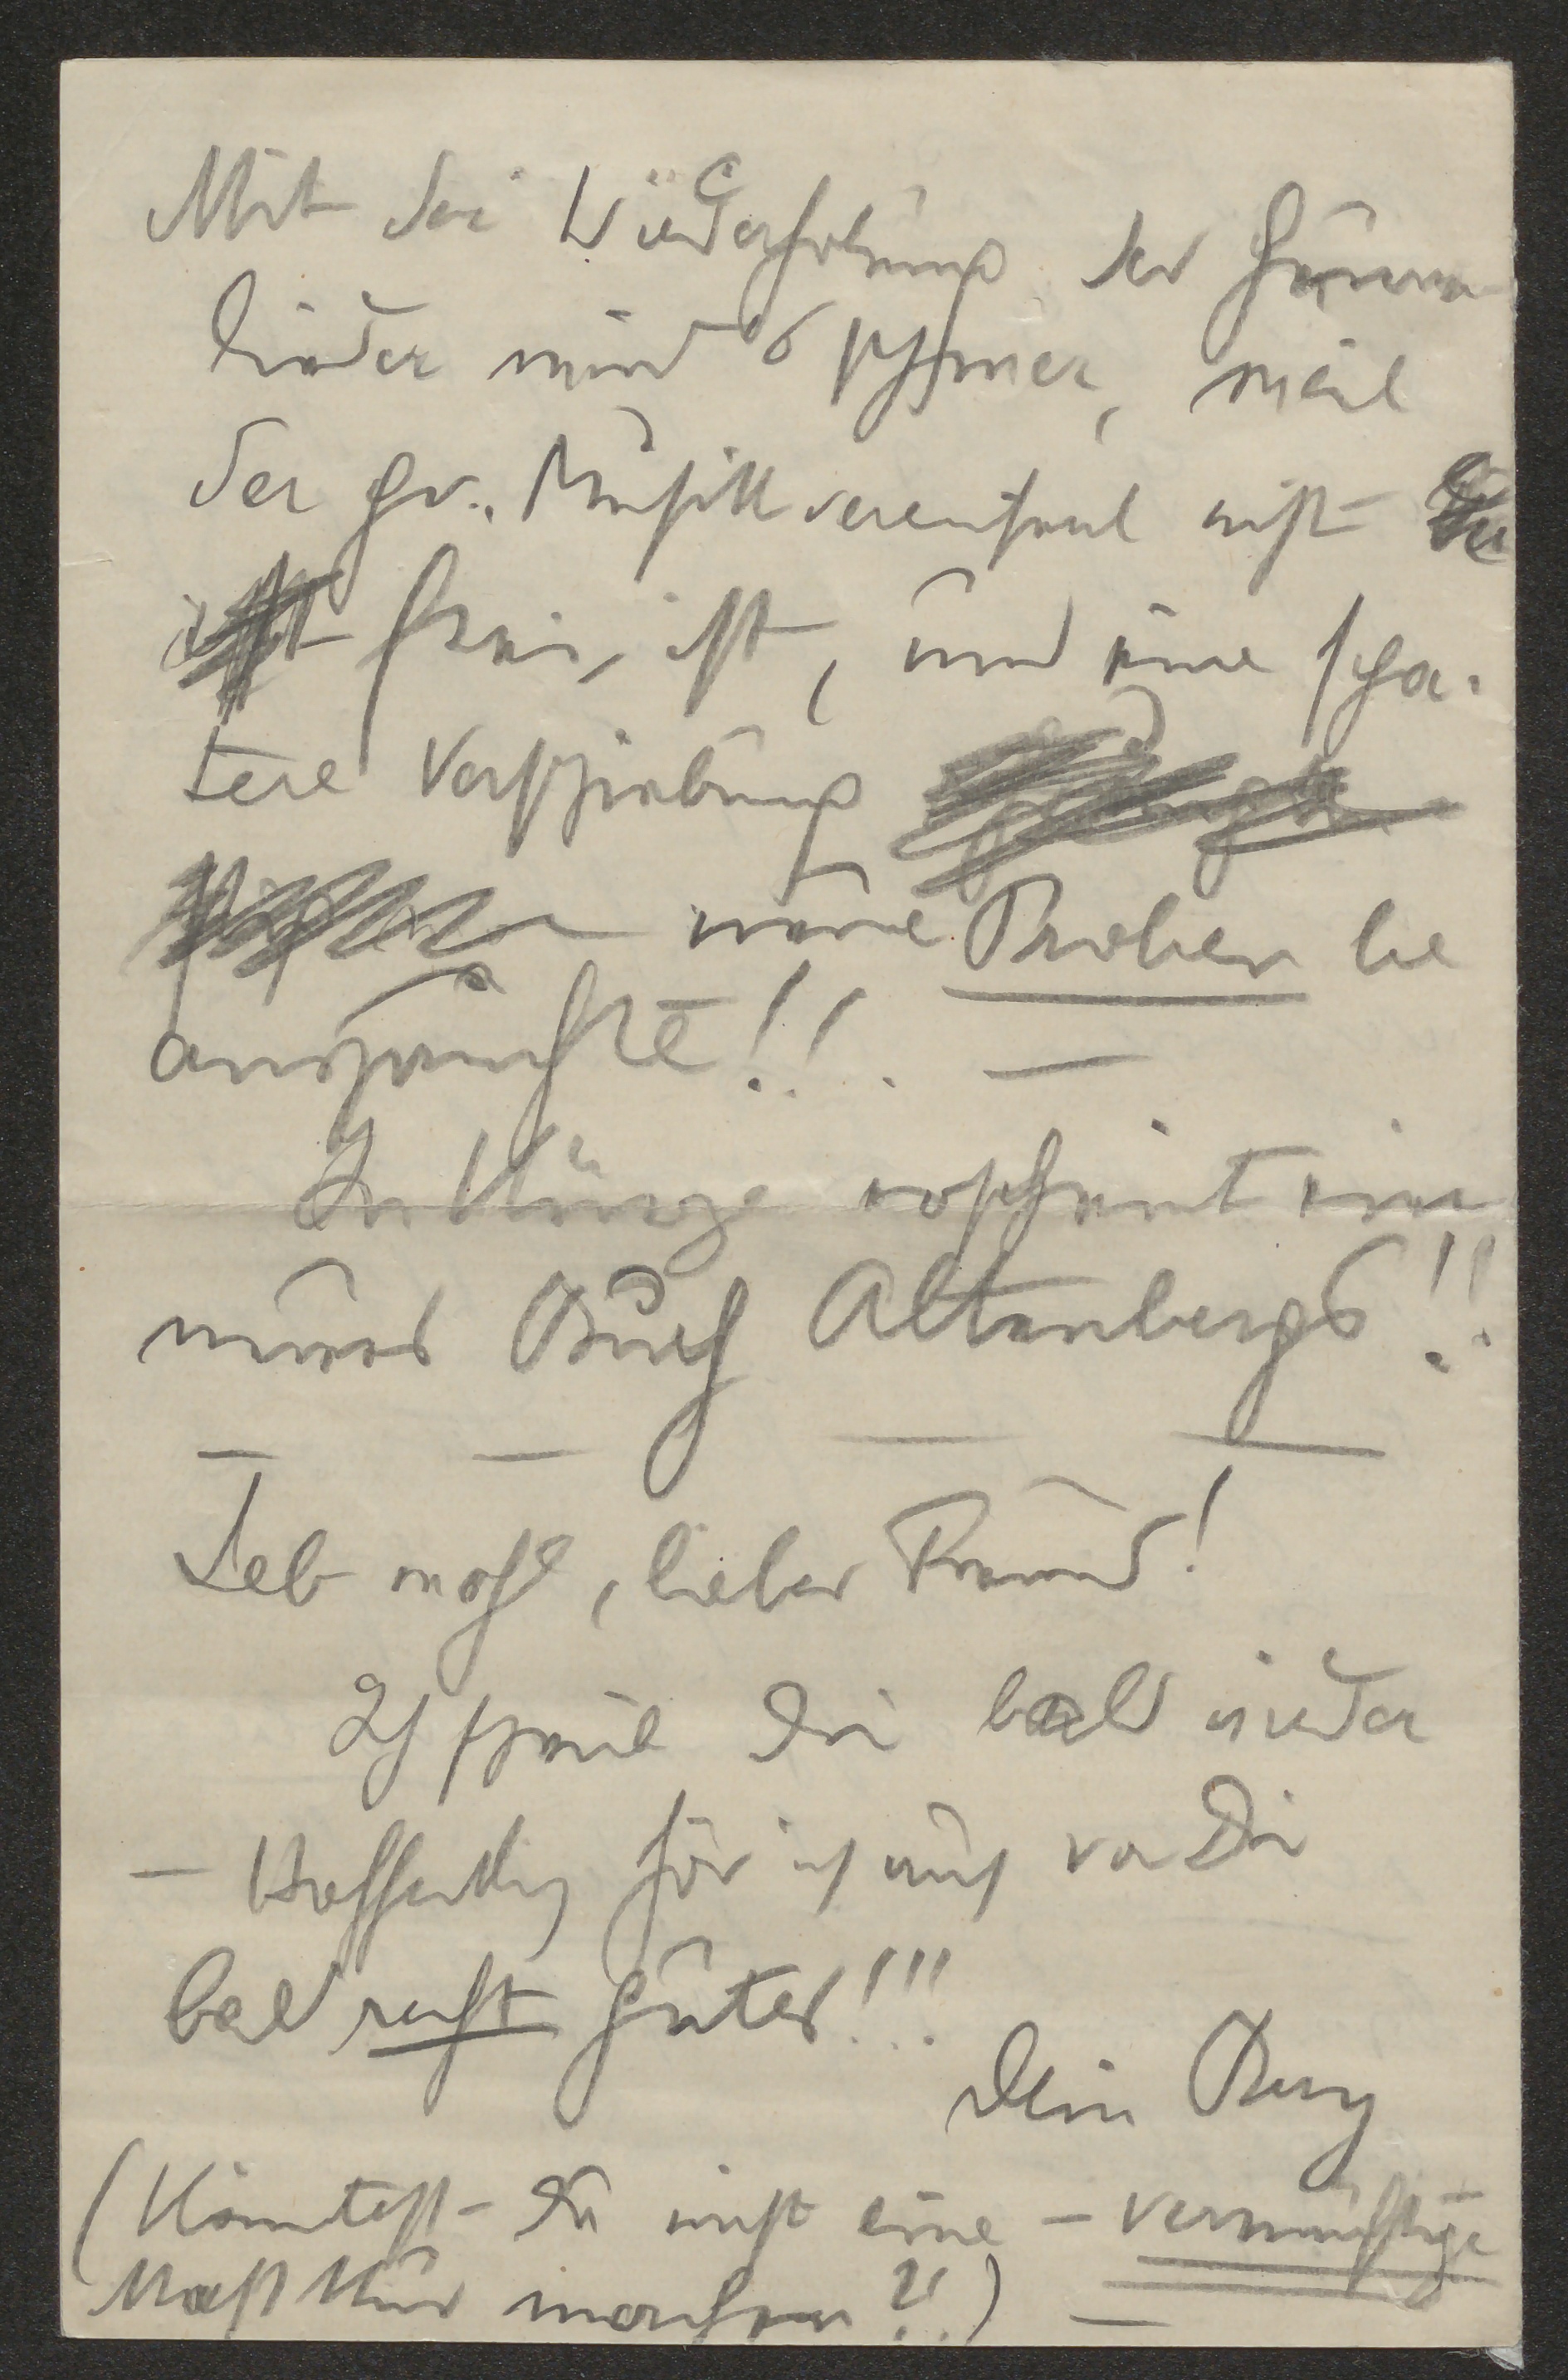 Mit der Wiederholung der Gurre
lieder wird's schwer, weil
der gr. Musikvereinsaal nicht
frei ist, und eine spä-
tere Verschiebung
neue Proben be
anspruchte!! —
In Kürze erscheint ein
neues Buch Altenbergs!!
— — — —
Leb wohl, lieber Freund!
Ich schreib Dir bald wieder
— Hoffentlich hör ich auch von Dir
bald recht gutes!!!
Dein Berg
(Könntest Du nicht eine — vernünftige
Mastkur machen?!) —